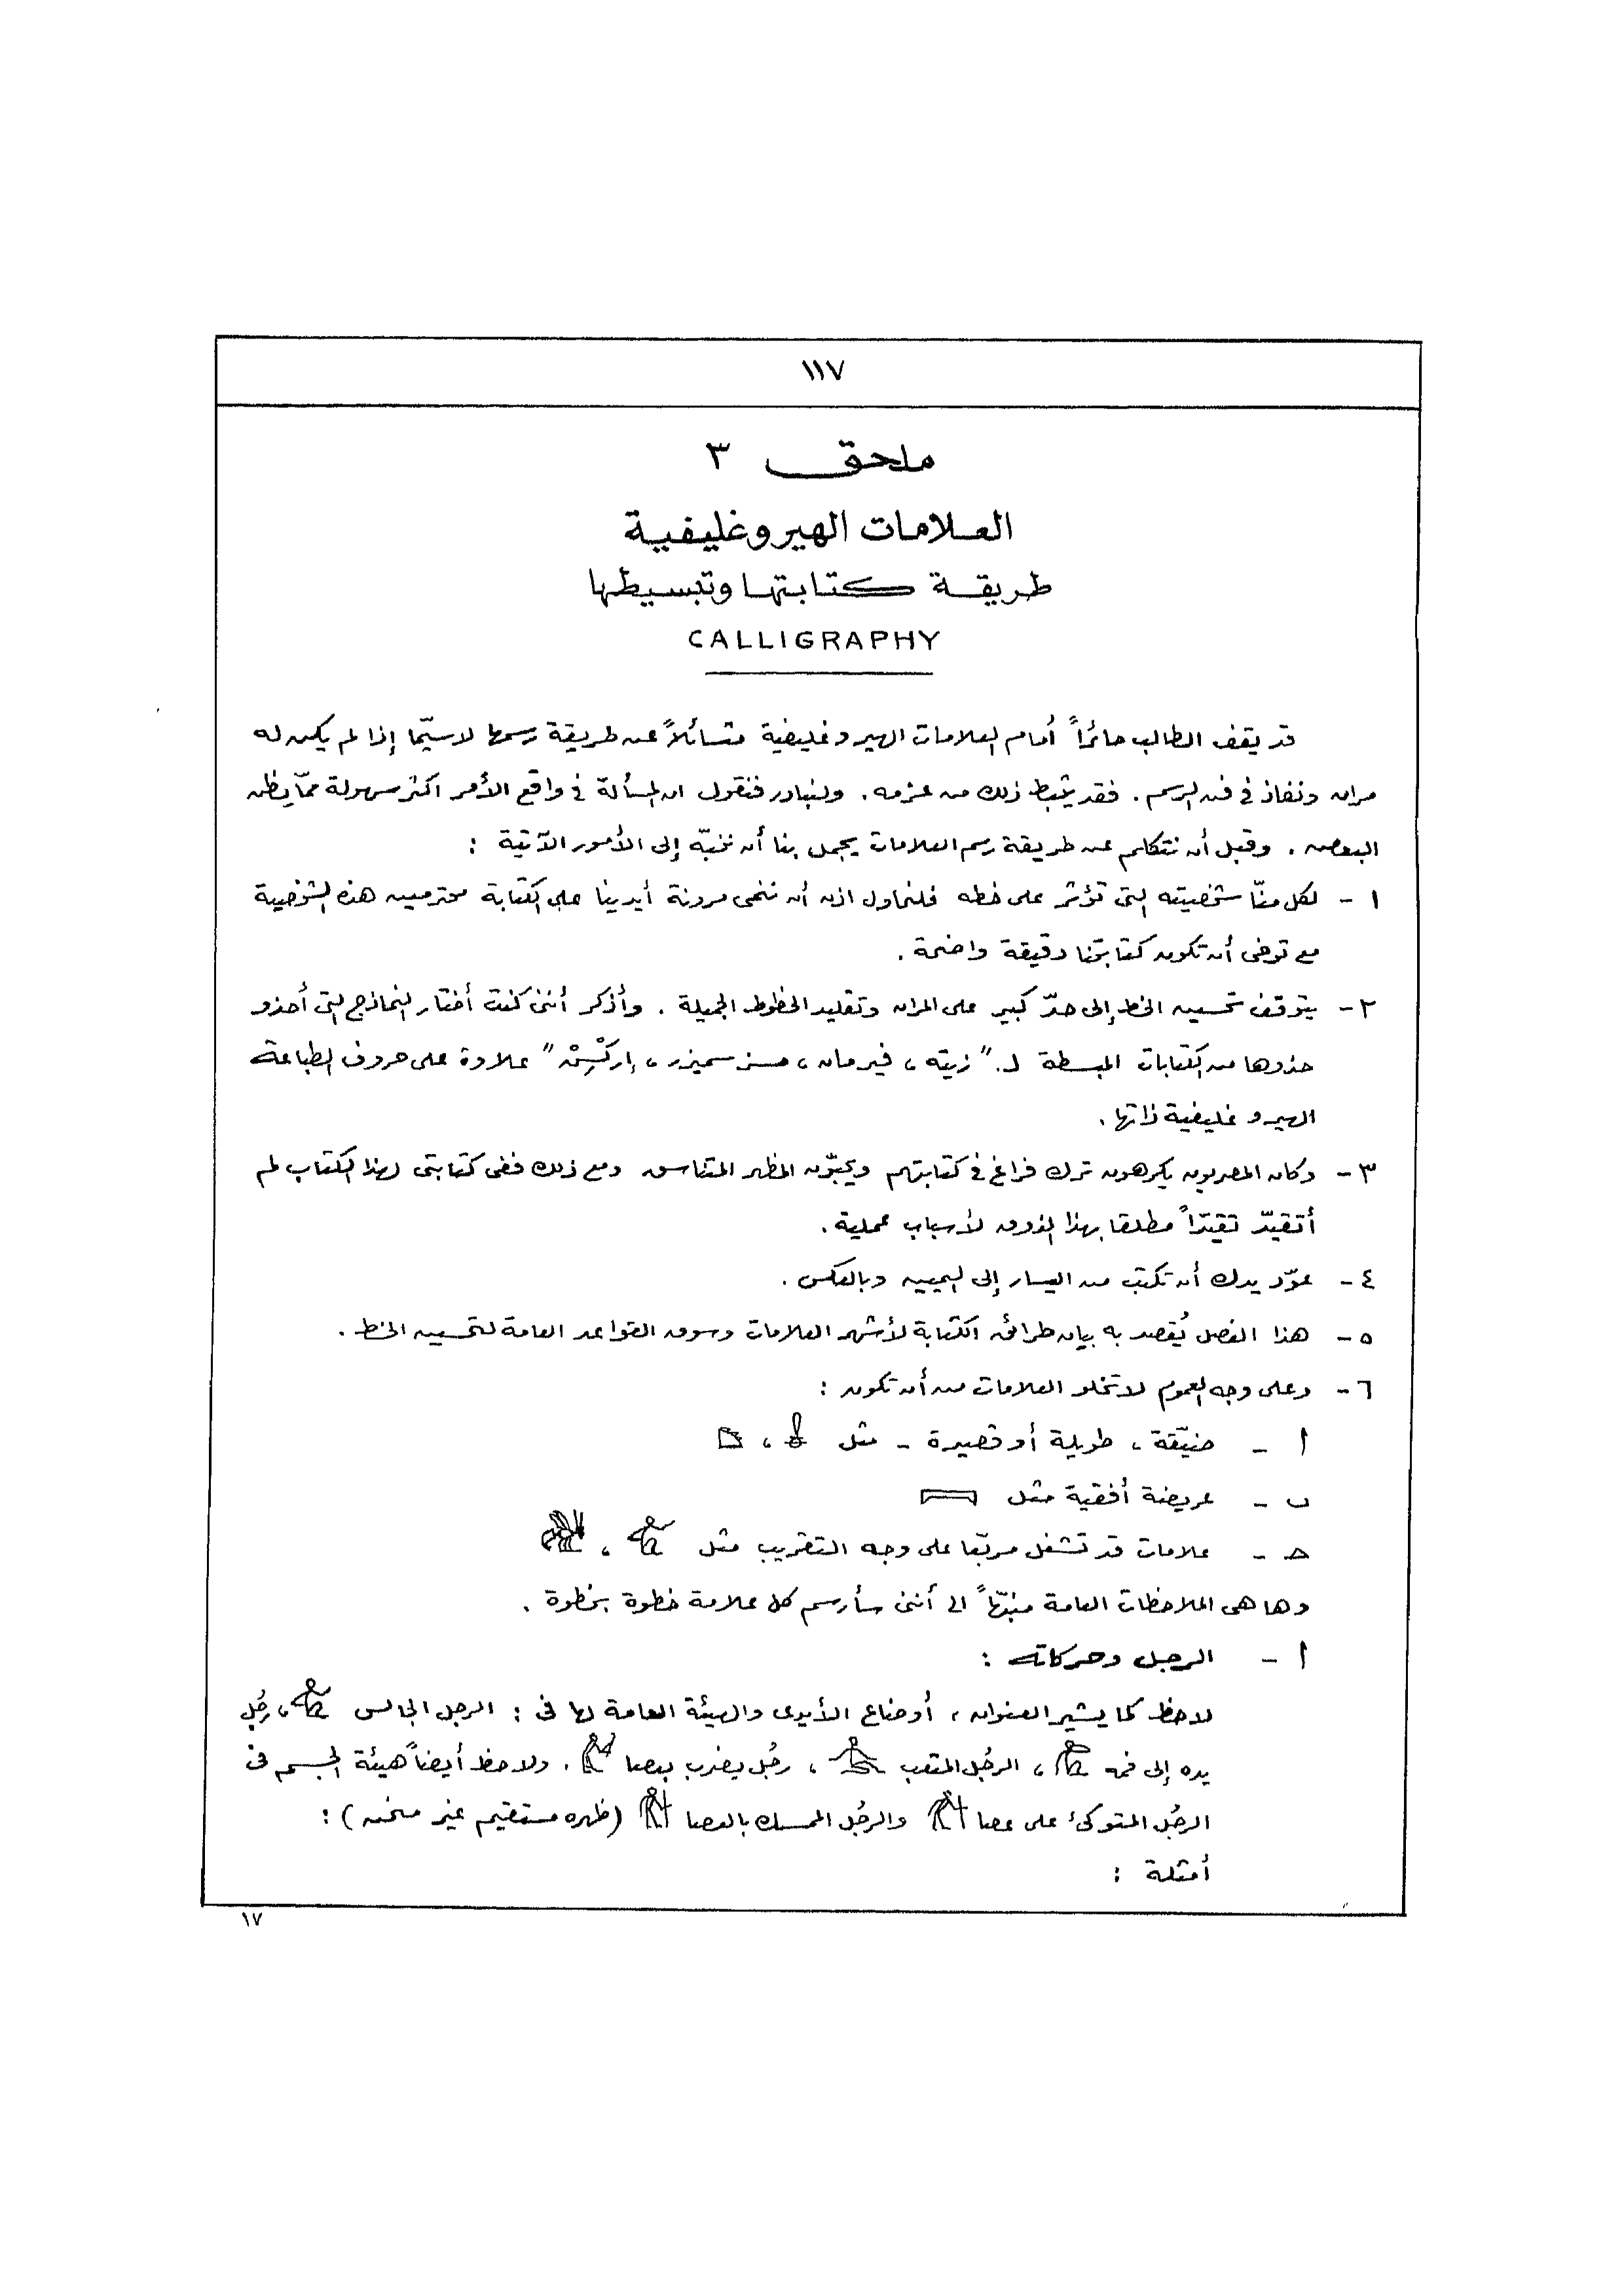 ١١٧
ملحق ٣
العلامات الهيروغليفية
طريقة كتابتها وتبسيطها
CALLIGRAPHY
قد يقف الطالب حائراً أمام العلامات الهيروغليفية متسائلاً عن طريقة رسمها لاسيّما إذا لم يكن له
مران ونفاذ فى فن الرسم . فقد يثبط ذلك من عزمه . ولنبادر فنقول ان المسألة فى واقع الأمر اكثر سهولة ممّا يظن
البعض . وقبل أن نتكلم عن طريقة رسم العلامات يجمل بنا أن ننبّه إلى الأمور الآتية :
١ - لكل منّا شخصيته التى تؤثر على خطه فلنحاول اذن أن ننمى مرونة أيدينا على الكتابة محترمين هذه الشخصية
مع توخى أن تكون كتابتنا دقيقة واضحة .
٢ - يتوقف تحسين الخط إلى حدّ كبير على المران وتقليد الخطوط الجميلة . وأذكر أننى كنت أختار النماذج التى أحذو
حذوها من الكتابات المبسطة لـ " زيته ، فيرمان ، مسز سميزر ، إركْسِنْ " علاوة على حروف الطباعة
الهيروغليفية ذاتها .
٣ - وكان المصريون يكرهون ترك فراغ فى كتابتهم ويحبّون المظهر المتناسق ومع ذلك ففى كتابتى لهذا الكتاب لم
أتقيّد تقيّداً مطلقا بهذا الذوق لأسباب عملية .
٤ - عوّد يدك أن تكتب من اليسار إلى اليمين وبالعكس .
٥ - هذا الفصل يُقصد به بيان طرائق الكتابة لأشهر العلامات وسوق القواعد العامة لتحسين الخط .
٦ - وعلى وجه العموم لا تخلو العلامات من أن تكون :
أ - ضيّقة ، طويلة أو قصيرة - مثل ،
ب - عريضة أفقية مثل
حـ - علامات قد تشغل مربّعا على وجه التقريب مثل ،
وها هى الملاحظات العامة منبّهاً الى أننى سأرسم كل علامة خطوة بخطوة .
أ - الرجل وحركاته :
لاحظ كما يشير العنوان ، أوضاع الأيدى والهيئة العامة لها فى : الرجل الجالس ، رجُل
يده إلى فمه ، الرجُل المتعب ، رجُل يضرب بعصا . ولاحظ أيضاً هيئة الجسم فى
الرجُل المتوكئ على عصا والرجُل الممسك بالعصا (ظهره مستقيم غير منحن ) :
أمثلة :
١٧